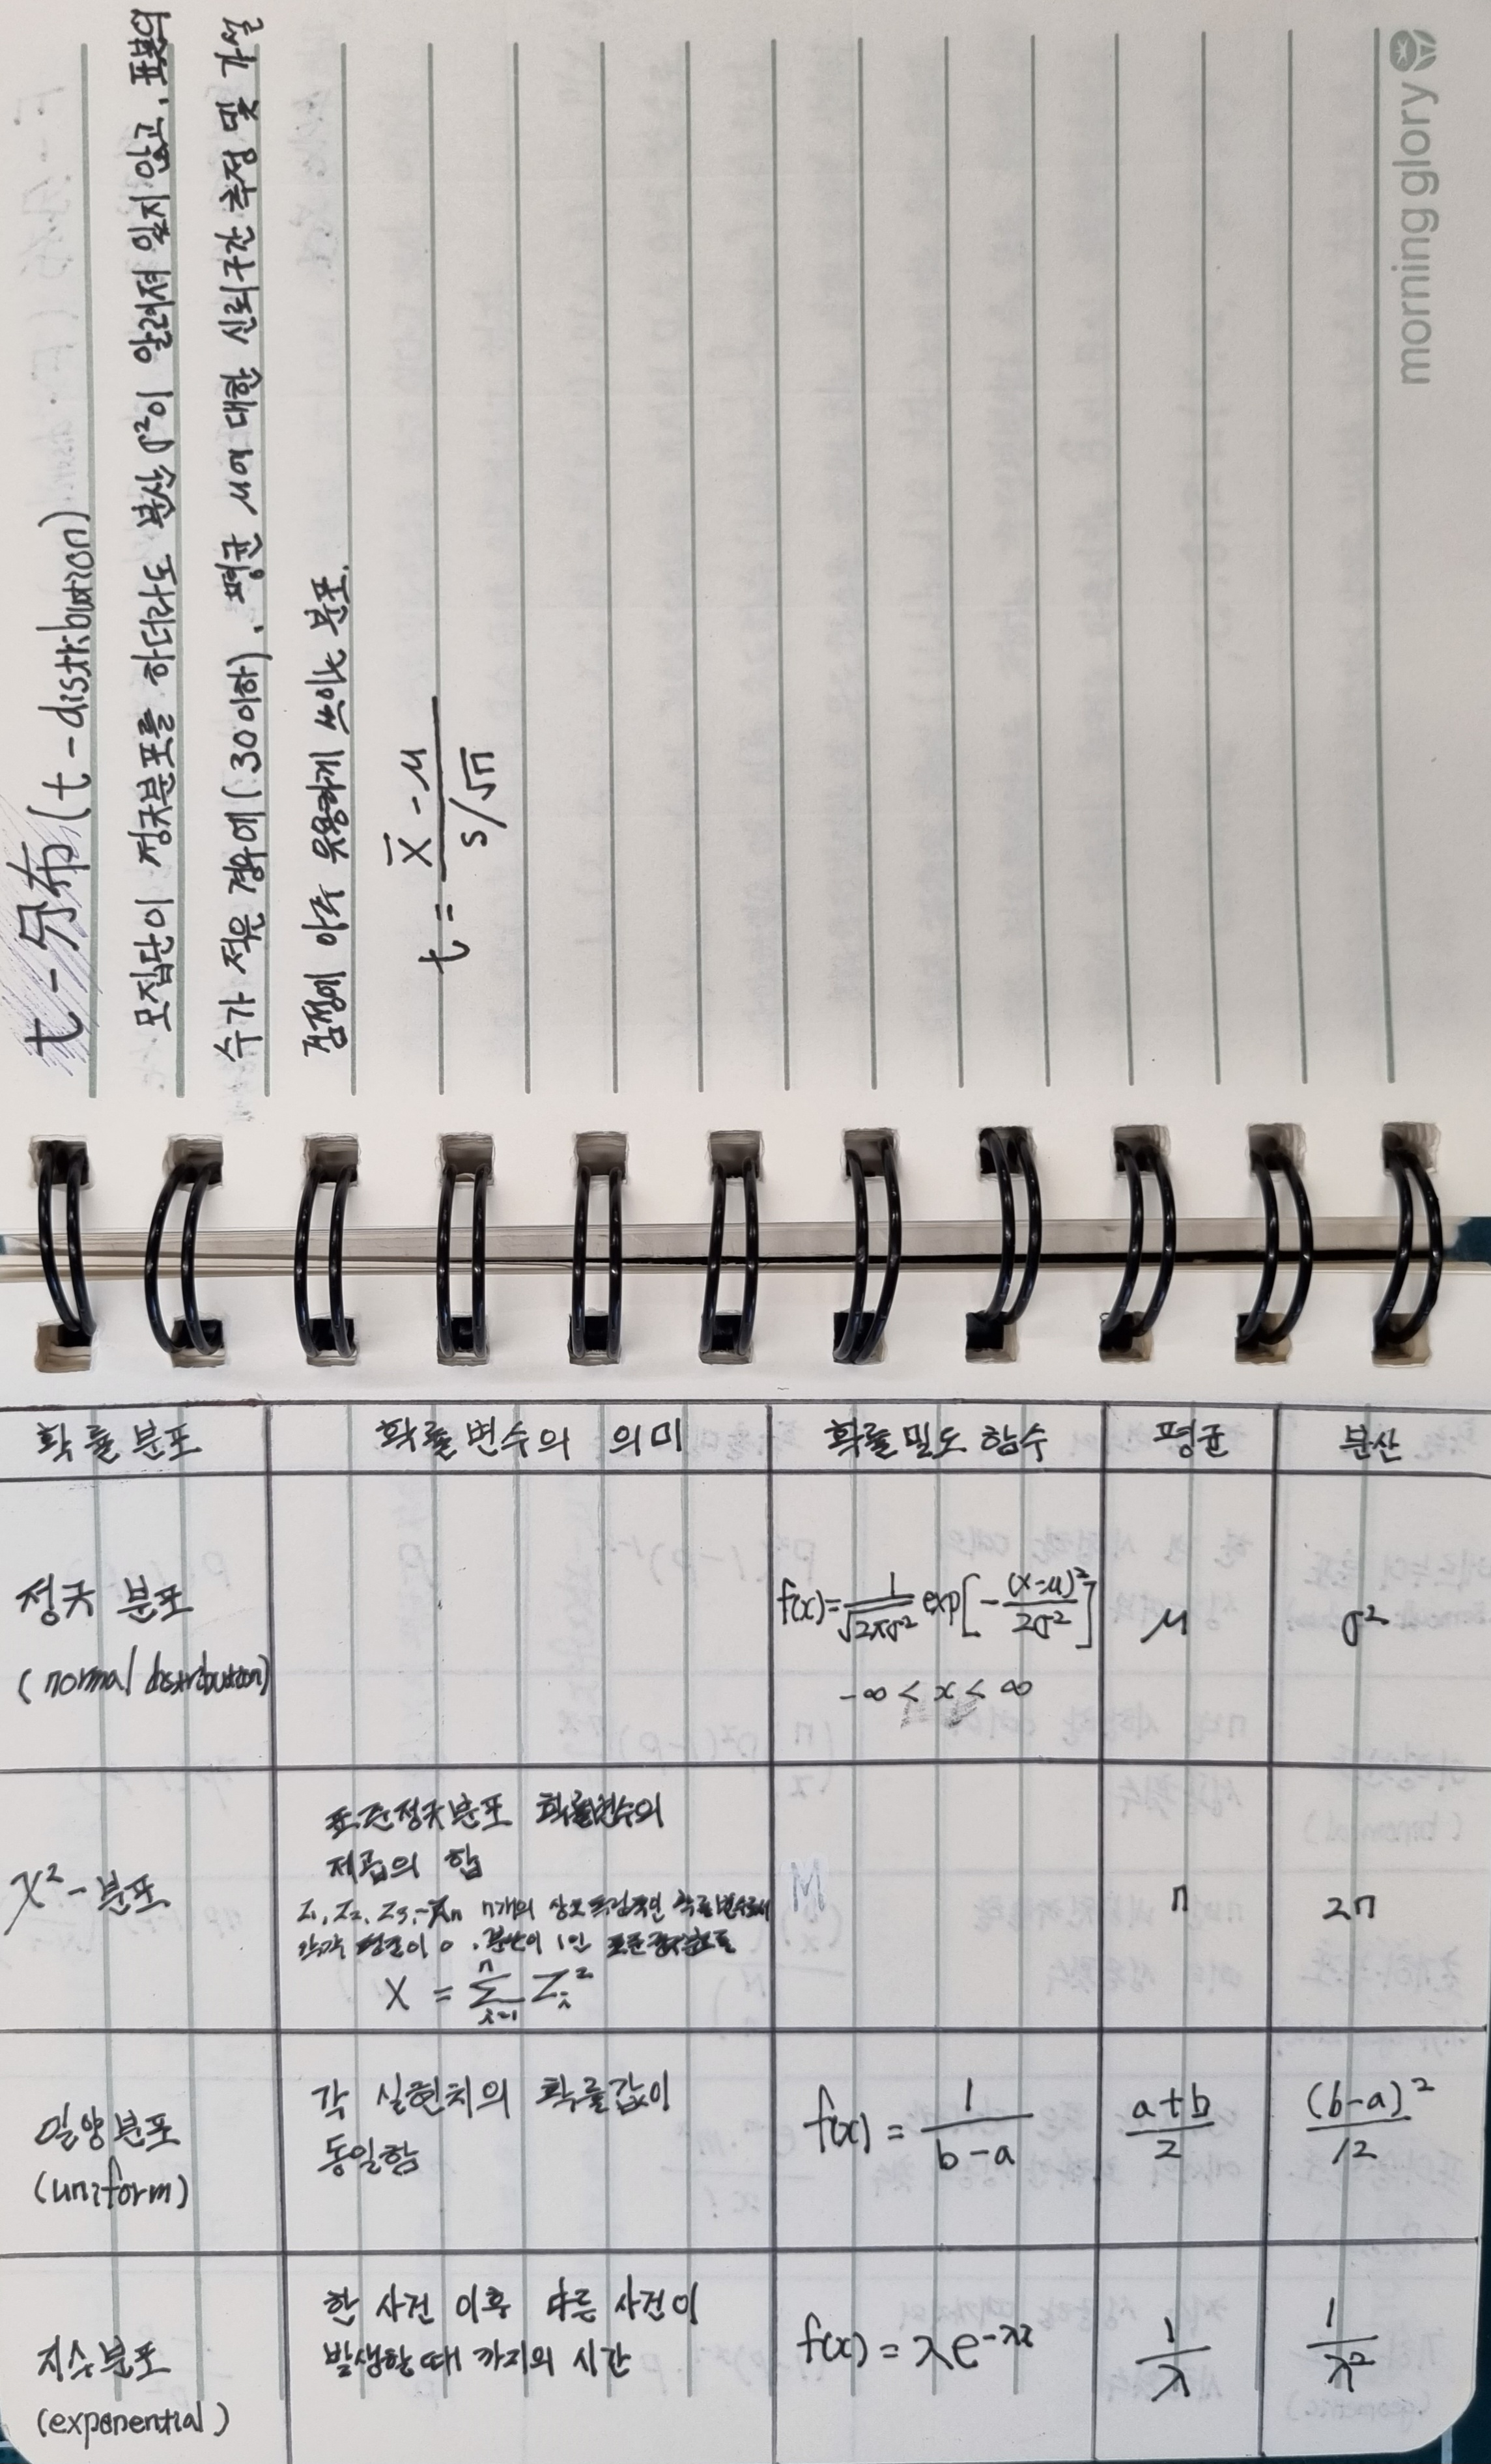 t-分布(t-distribution)
모집단이 정규분포를 하더라도 분산 σ²이 알려져 있지 않고, 표본의
수가 적은 경우에(30이하), 평균 μ에 대한 신뢰구간 추정 및 가설
검정에 아주 유용하게 쓰이는 분포.
t = (X̄ - μ) / (s/√n)
morning glory
확률분포 확률변수의 의미 확률밀도함수 평균 분산
정규 분포
(normal distribution)
f(x)=1/√2πσ² exp[-(x-μ)²/2σ²]
-∞ < x < ∞
μ
σ²
X²-분포
표준정규분포 확률변수의
제곱의 합
Z₁, Z₂, Z₃, -Zₙ n개의 상호독립적인 확률변수로서
각각 평균이 0, 분산이 1인 표준정규분포를
X = Σⁿᵢ₌₁ Zᵢ²
n
2n
일양분포
(uniform)
각 실현치의 확률값이
동일함
f(x) = 1/(b-a)
(a+b)/2
(b-a)²/12
지수분포
(exponential)
한 사건 이후 다른 사건이
발생할 때 까지의 시간
f(x) = λe^-λx
1/λ
1/λ²